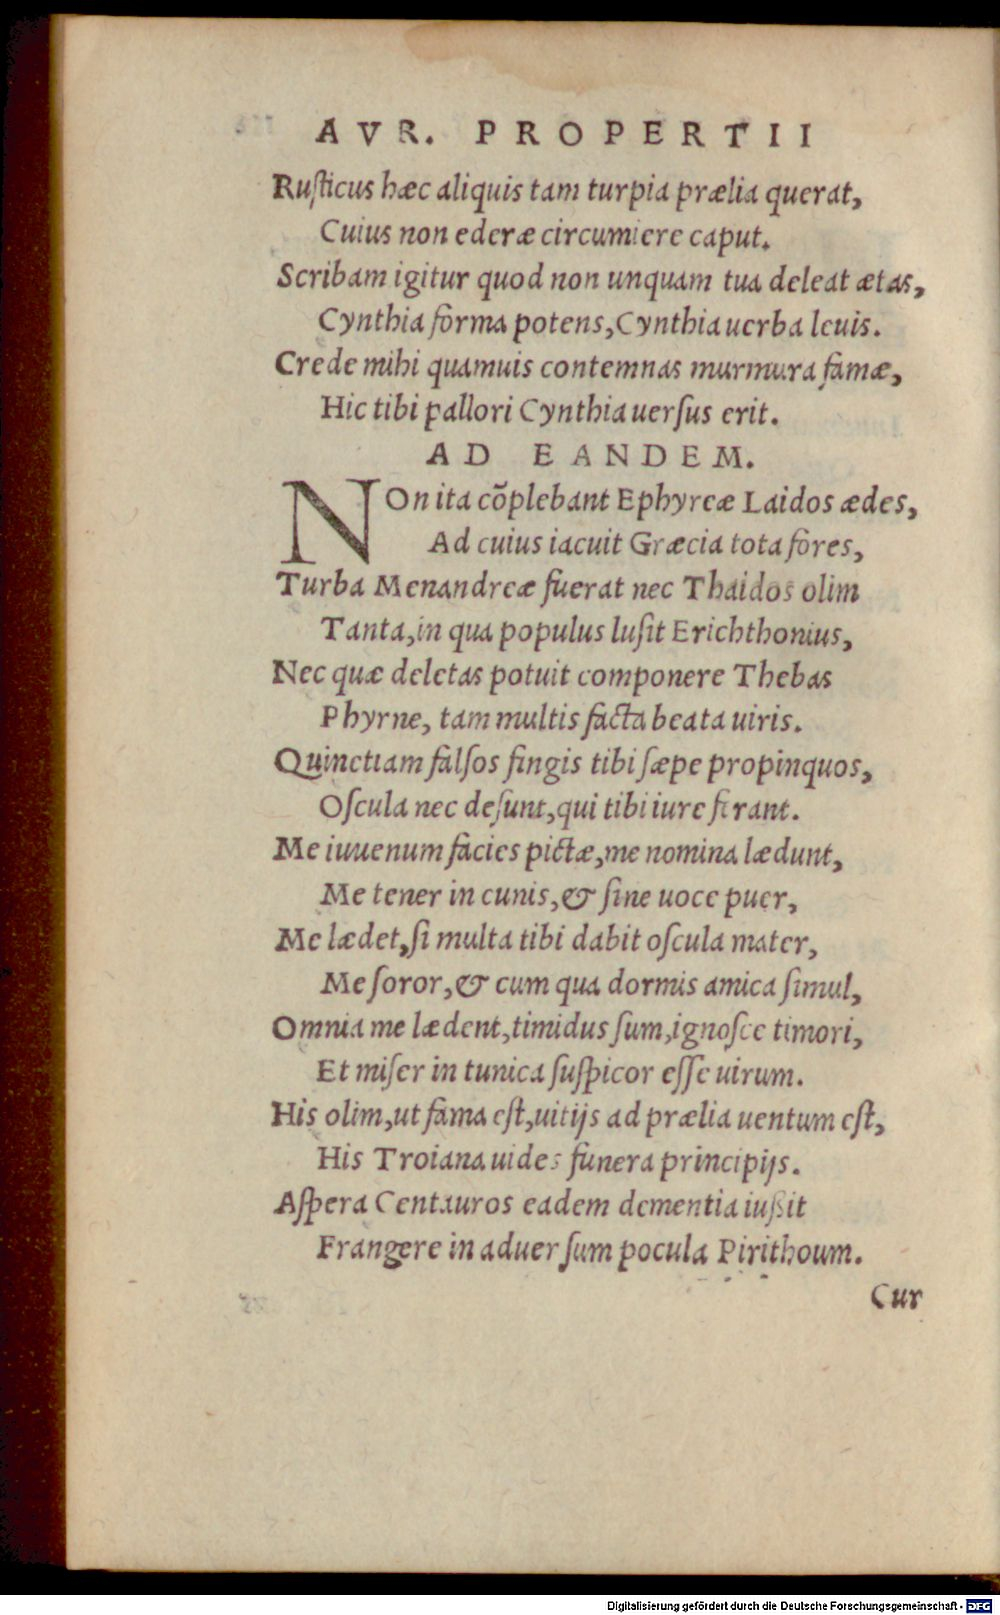 AVR. PROPERTII
Rusticus hæc aliquis tam turpia prælia querat,
Cuius non ederæ circumiere caput.
Scribam igitur quod non unquam tua deleat ætas,
Cynthia forma potens, Cynthia uerba leuis.
Crede mihi quamuis contemnas murmura famæ,
Hic tibi pallori Cynthia uersus erit.
AD EANDEM.
NOn ita cōplebant Ephyreæ Laidos ædes,
Ad cuius iacuit Græcia tota fores,
Turba Menandreæ fuerat nec Thaidos olim
Tanta, in qua populus lusit Erichthonius,
Nec quæ deletas potuit componere Thebas
Phyrne, tam multis facta beata uiris.
Quinctiam falsos fingis tibi sæpe propinquos,
Oscula nec desunt, qui tibi iure ferant.
Me iuuenum facies pictæ, me nomina lædunt,
Me tener in cunis, & sine uoce puer,
Me lædet, si multa tibi dabit oscula mater,
Me soror, & cum qua dormis amica simul,
Omnia me lædent, timidus sum, ignosce timori,
Et miser in tunica suspicor esse uirum.
His olim, ut fama est, uitijs ad prælia uentum est,
His Troiana uides funera principijs.
Aspera Centauros eadem dementia iußit
Frangere in aduersum pocula Pirithoum.
Cur
Digitalisierung gefördert durch die Deutsche Forschungsgemeinschaft - DFG